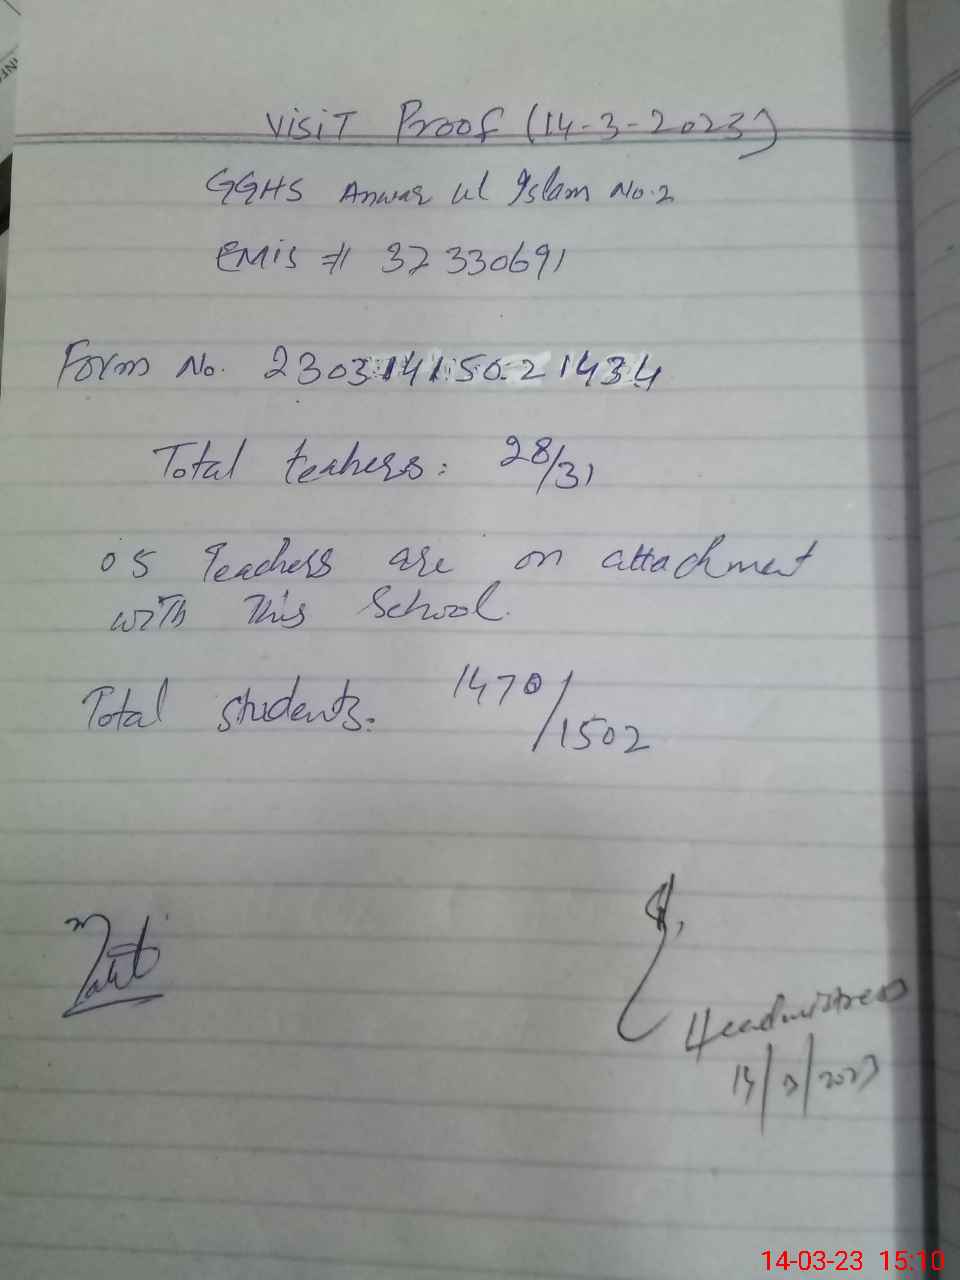 Visit Proof (14-3-2023)
GGHS Anwar ul Islam No.2
EMIS # 37330691
Form No. 23031415021434
Total teahers: 28/31
05 Teachers are on attachment
with This School.
Total students. 1470/1502
Headmistress
14/3/2023
14-03-23 15:10